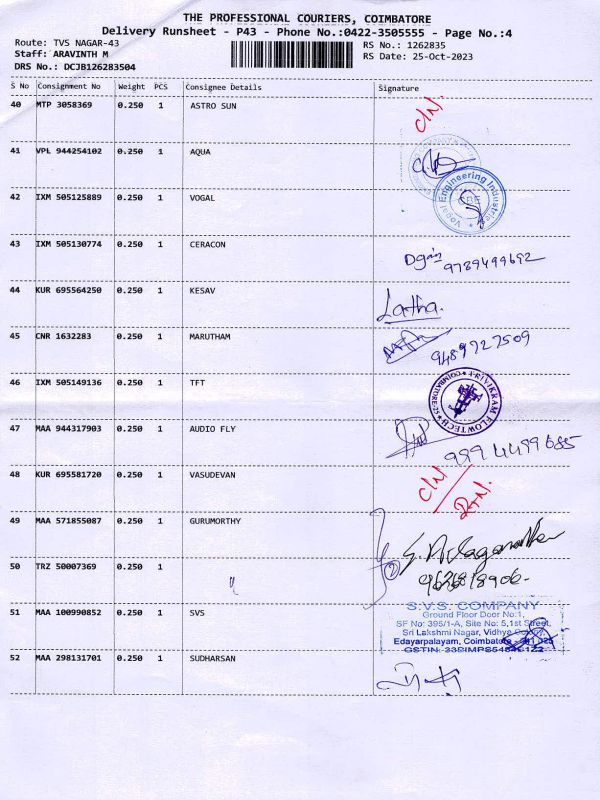 THE PROFESSIONAL COURIERS, COIMBATORE
Delivery Runsheet - P43 - Phone No.:0422-3505555 - Page No.:4
Route: TVS NAGAR-43
Staff: ARAVINTH M
DRS No.: DCJB126283504
RS No.: 1262835
RS Date: 25-Oct-2023
S No Consignment No Weight PCS Consignee Details Signature
40 MTP 3058369 0.250 1 ASTRO SUN C/N
41 VPL 944254102 0.250 1 AQUA
42 IXM 505125889 0.250 1 VOGAL
Vogal Engineering Industries
43 IXM 505130774 0.250 1 CERACON
9789499692
44 KUR 695564250 0.250 1 KESAV Latha.
45 CNR 1632283 0.250 1 MARUTHAM
9489727509
46 IXM 505149136 0.250 1 TFT
TRIVIKRAM FLOWTECH
47 MAA 944317903 0.250 1 AUDIO FLY
9994499685
48 KUR 695581720 0.250 1 VASUDEVAN C/N
49 MAA 571855087 0.250 1 GURUMORTHY
50 TRZ 50007369 0.250 1
51 MAA 100990852 0.250 1 SVS
S.V.S. COMPANY
Ground Floor Door No:1,
SF No: 395/1-A, Site No: 5,1st Street,
Sri Lakshmi Nagar, Vidhya Colony,
Edayarpalayam, Coimbatore - 641 025
GSTIN:
52 MAA 298131701 0.250 1 SUDHARSAN